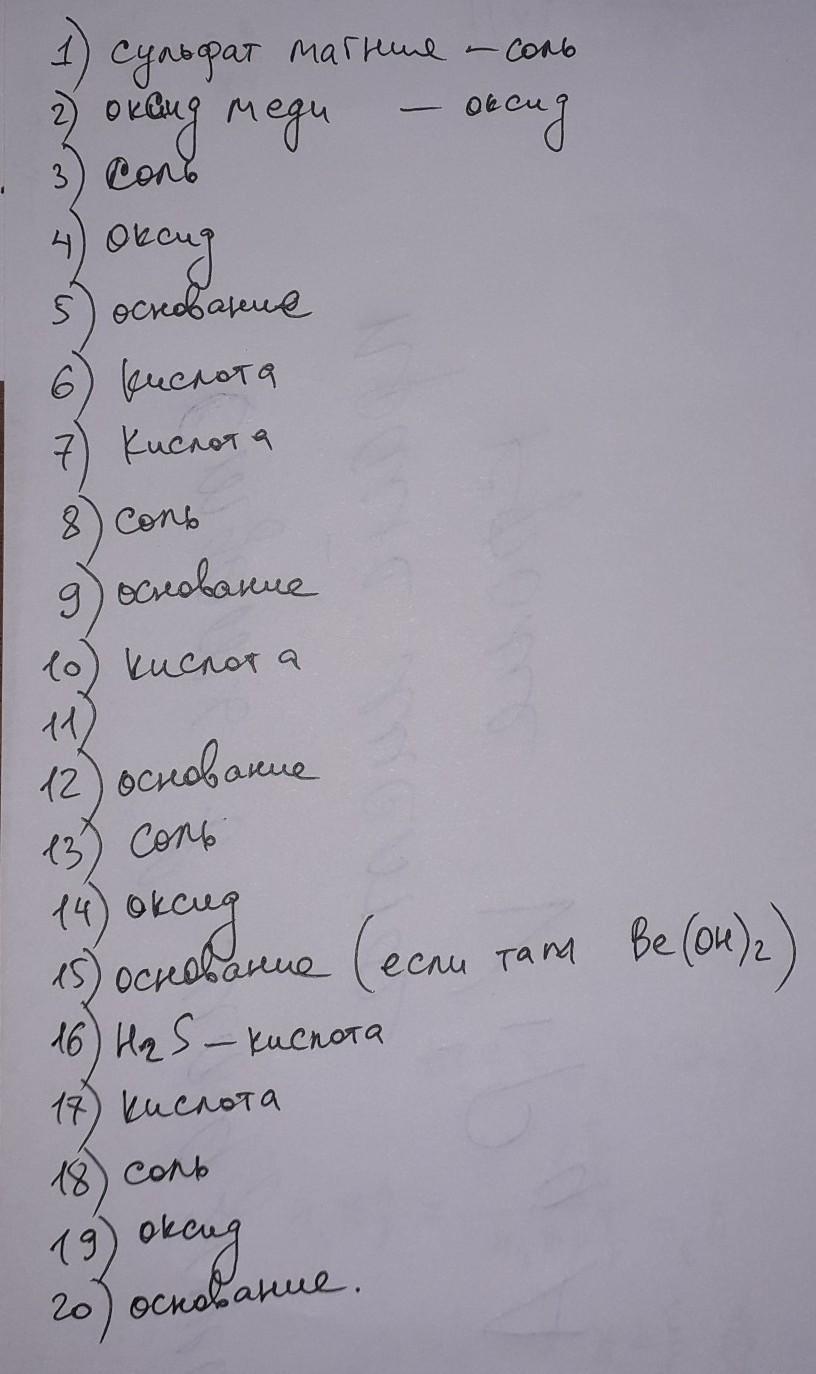 1) сульфат магние – соль
2) оксид меди – оксид
3) Соль
4) Оксид
5) основание
6) кислота
7) Кислота
8) соль
9) основание
10) кислота
11)
12) основание
13) соль
14) оксид
15) основание (если там Be(OH)2)
16) H2S – кислота
17) кислота
18) соль
19) оксид
20) основание.